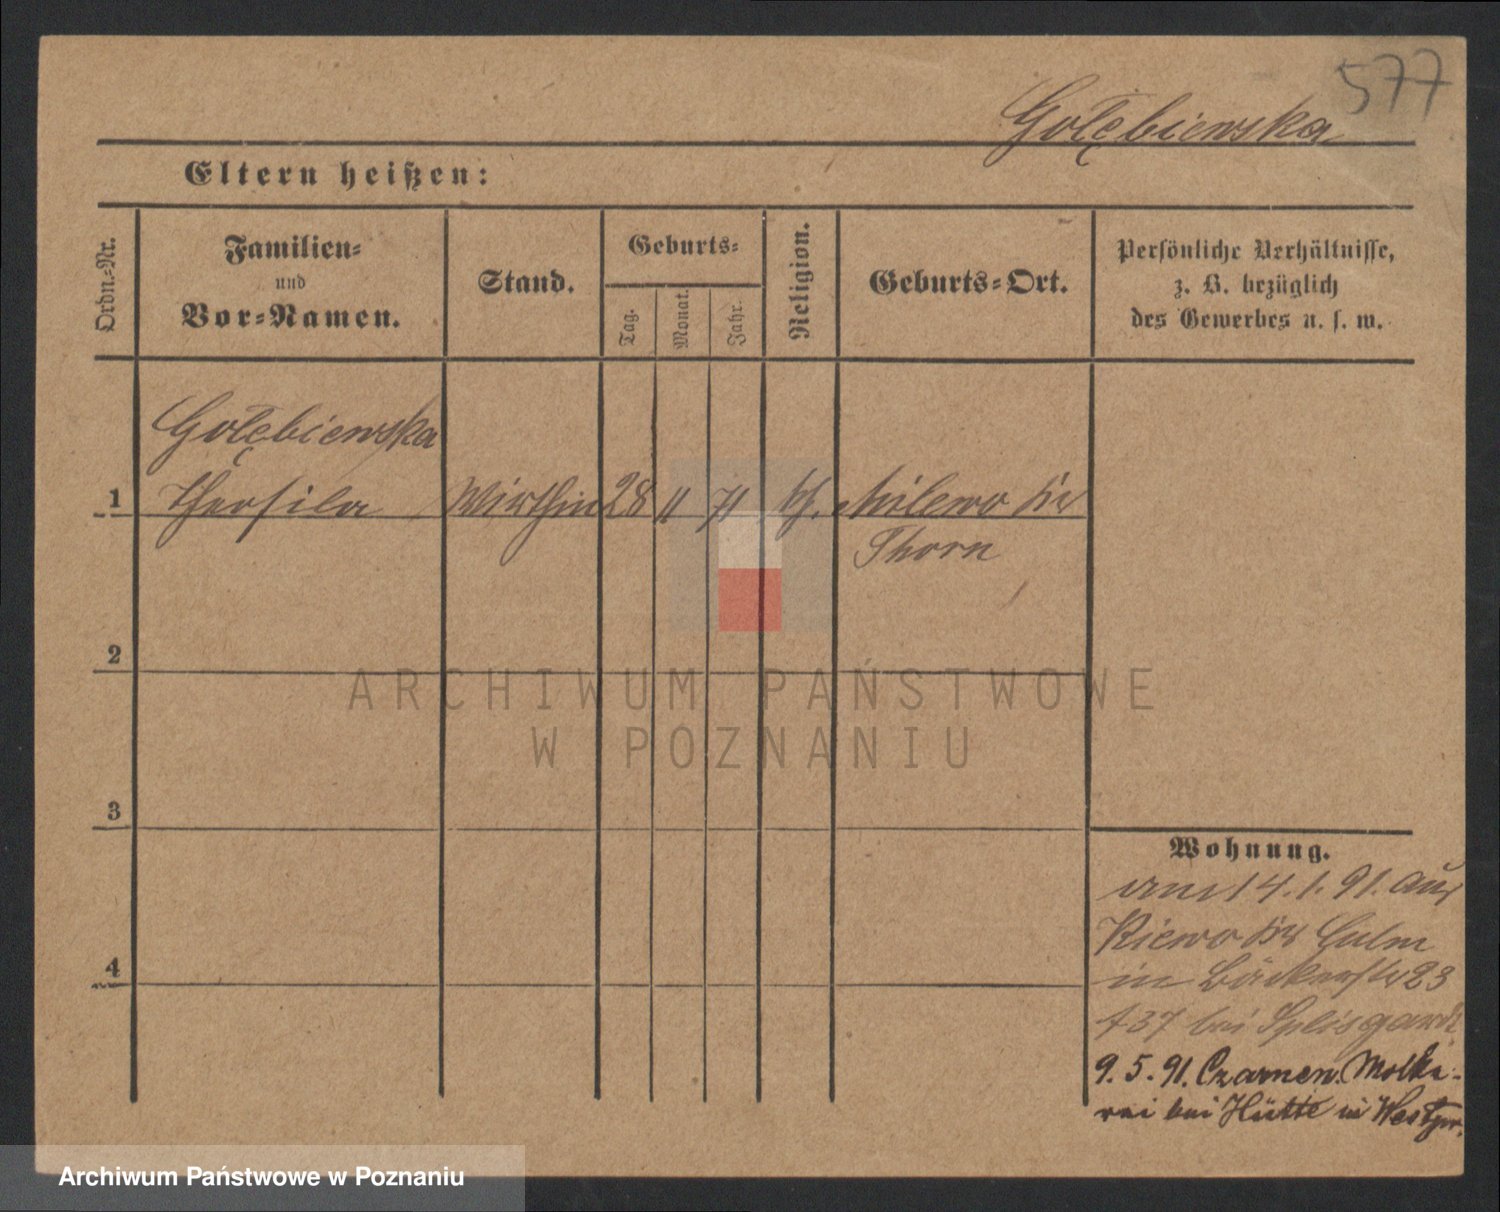 577
Gołębiewska
Eltern heißen:
Ordn.-Nr.
Familien-
und
Vor-Namen.
Stand.
Geburts-
Tag.
Monat.
Jahr.
Religion.
Geburts-Ort.
Persönliche Verhältnisse,
z. B. bezüglich
des Gewerbes u. s. w.
Gołębiewska
1 Wirthin 28 11 71 kh. Milewo Kr
Thorn
2
ARCHIWUM PAŃSTWOWE
W POZNANIU
3
Wohnung.
am 14.1.91. aus
Kiewo Kr Culm
in Bäckerstr 23
bei
4
9. 5. 91. Czarnen. Molke-
rei bei Hütte in Westpr.
Archiwum Państwowe w Poznaniu